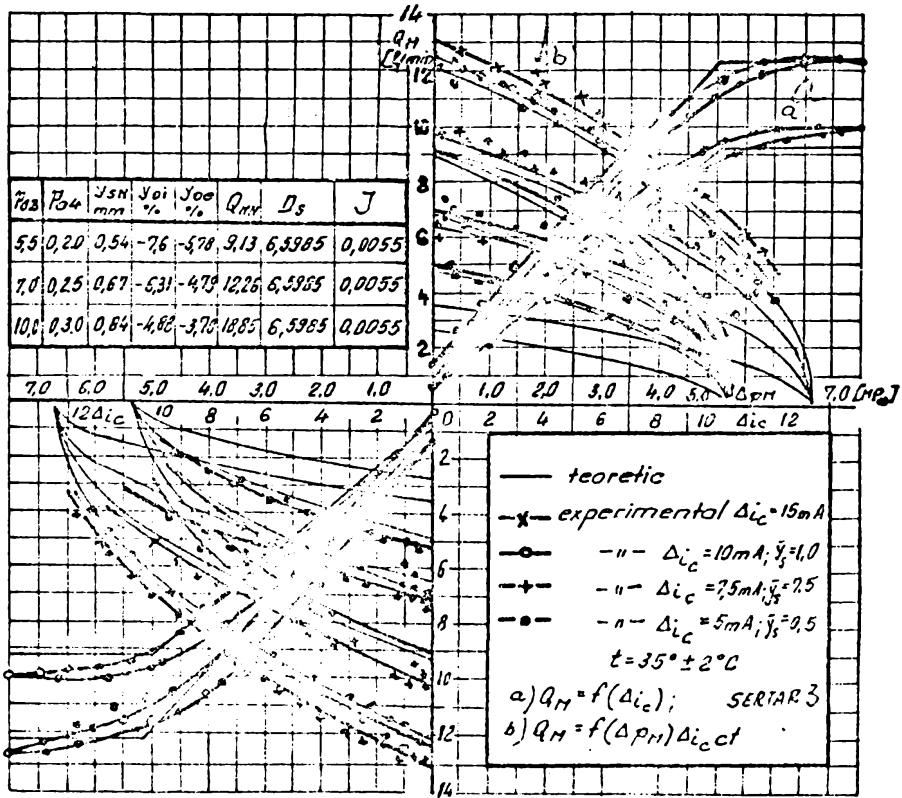 14
Q_M
12
b
a
10
8
6
4
2
P̄03 P̄04 ySN mm y0i % y0e % D_S J
5,5 0,20 0,54 -7,6 -5,78 9,13 6,5985 0,0055
7,0 0,25 0,67 -4,79 12,26 6,5985 0,0055
10,0 0,30 0,84 18,85 6,5985 0,0055
7,0 6,0 5,0 4,0 3,0 2,0 1,0 1,0 2,0 3,0 4,0 5,0 Δp_M 7,0 [MPa]
12 Δi_c 10 8 6 4 2 0 2 4 6 8 10 Δic 12
2
4
6
8
10
12
14
teoretic
experimental Δi_c = 15mA
-"- Δi_c = 10mA; ȳ_s = 1,0
-"- Δi_c = 7,5mA; ȳ_s = 7,5
-"- Δi_c = 5mA; ȳ_s = 0,5
t = 35° ± 2°C
a) Q_M = f(Δi_c); SERTAR 3
b) Q_M = f(Δp_M) Δi_c ct